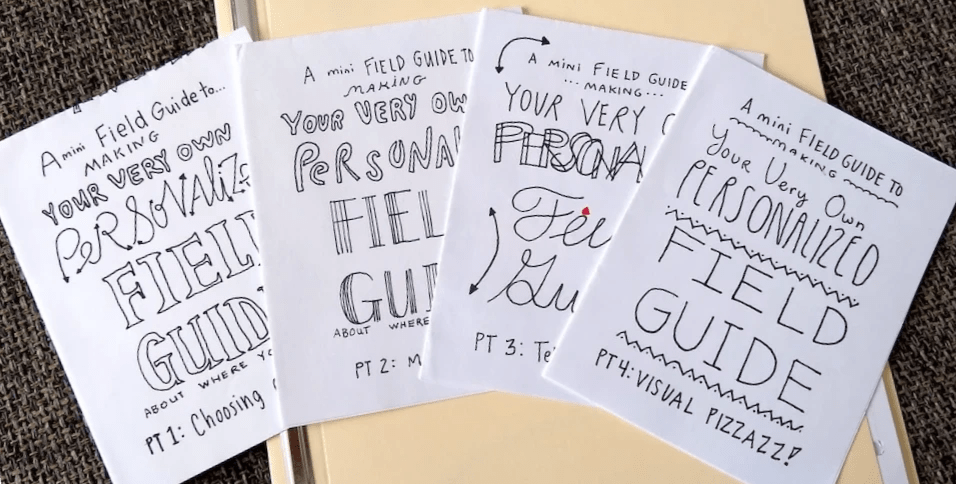 A mini Field Guide to...
MAKING
YOUR VERY OWN
PERSONALIZE
FIEL
GUID
ABOUT WHERE YO
PT 1: Choosing
A mini FIELD GUIDE TO
MAKING
YOUR VERY OW
PERSONA
FIEL
GUI
ABOUT WHERE
PT 2: M
A mini FIELD GUIDE
...MAKING...
YOUR VERY
PERSONA
Fie
Gu
PT 3: Te
A mini FIELD GUIDE TO
MAKING
Your Very Own
PERSONALIZED
FIELD
GUIDE
PT 4: VISUAL PIZZAZZ!